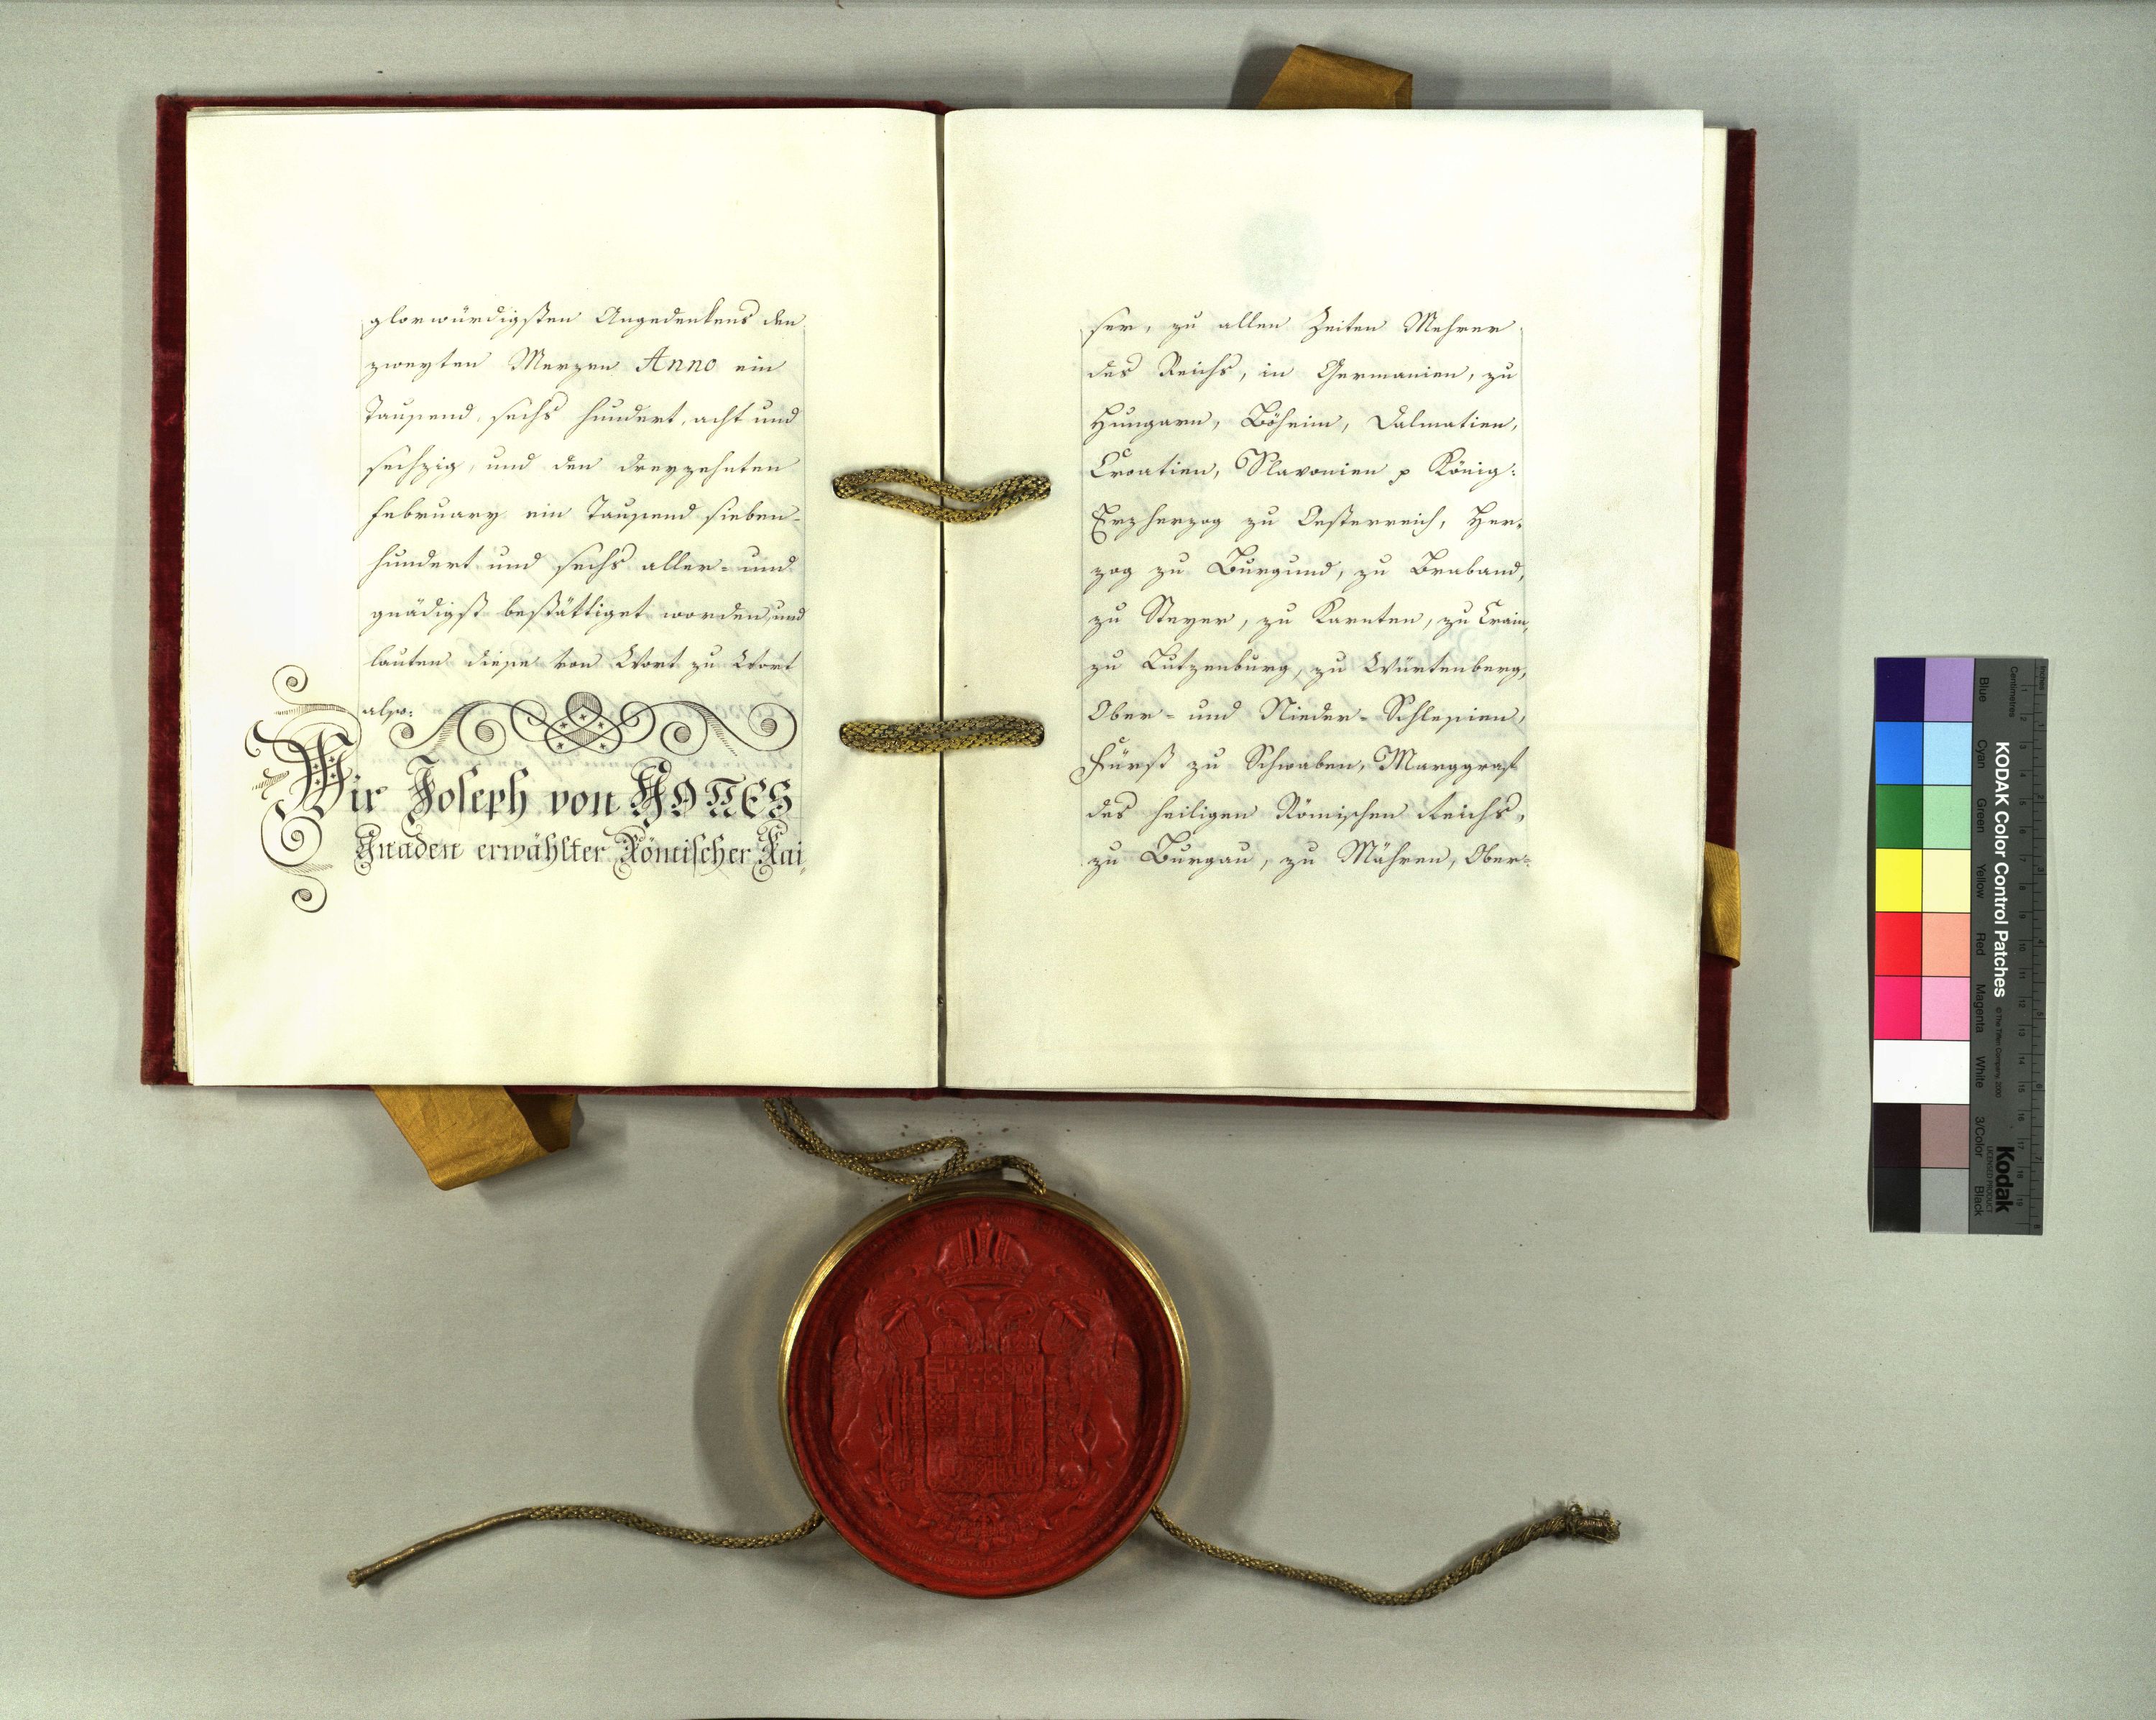 glorwürdigsten Angedenkens den
zweyten Merzen Anno ein
Tausend, sechs hundert, acht und
sechzig, und den dreyzehnten
February ein Tausend sieben-
hundert und sechs aller- und
gnädigst bestättiget worden, und
lauten diese von Wort zu Wort
also:
Wir Joseph von GOTTES
Gnaden erwählter Römischer Kai-
ser, zu allen Zeiten Mehrer
des Reichs, in Germanien, zu
Hungarn, Böheim, Dalmatien,
Croatien, Slavonien p König:
Erzherzog zu Oesterreich, Her-
zog zu Burgund, zu Braband,
zu Steyer, zu Karnten, zu Crain,
zu Lutzenburg, zu Würtenberg,
Ober- und Nieder-Schlesien,
Fürst zu Schwaben, Marggraf
des heiligen Römischen Reichs,
zu Burgau, zu Mähren, Ober-
KODAK Color Control Patches
© The Tiffen Company, 2000
Kodak
LICENSED PRODUCT
Blue
Cyan
Green
Yellow
Red
Magenta
White
3/Color
Black
Centimetres
Inches
1 2 3 4 5 6 7 8 9 10 11 12 13 14 15 16 17 18 19
1 2 3 4 5 6 7 8